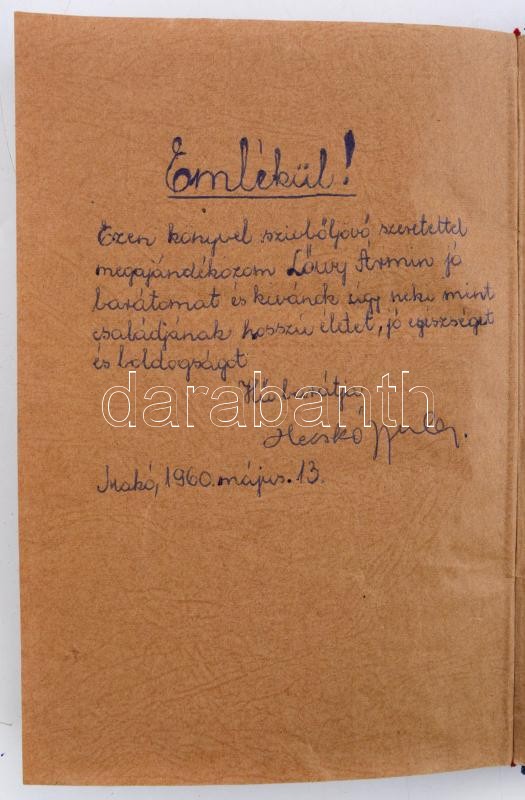 Emlékül!
Ezen könyvel szivbőljövő szeretettel
megajándékozom Lőwy Ármin jó
barátomat és kivánok úgy neki mint
családjának hosszú életet, jó egészséget
és boldogságot
Hű barátja
darabanth
Herskó
Makó, 1960. május. 13.